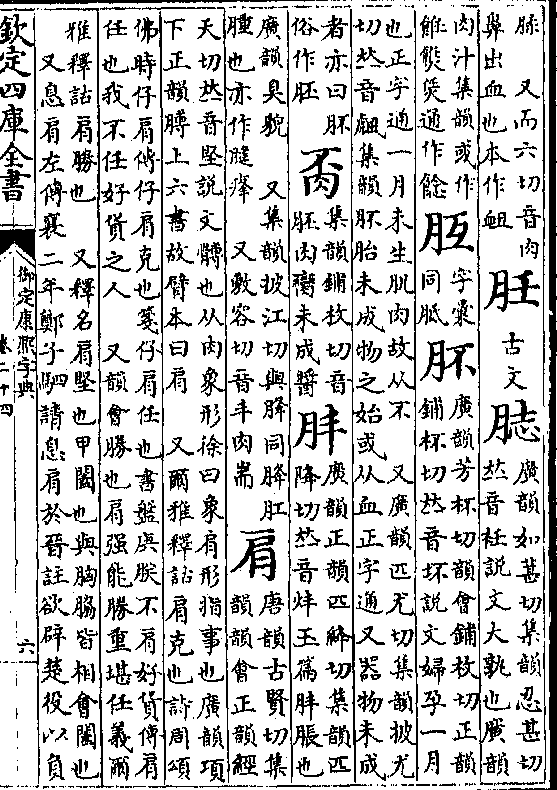 又而六切音肉
鼻出血也本作衄
䏕
古文
廣韻如甚切集韻忍甚切
𠀤音荏說文大孰也廣韻
肉汁集韻或作
通作餘
字彙
同胝
肧
廣韻芳杯切韻會鋪枚切正韻
鋪杯切𠀤音坏說文婦孕一月
也正字通一月未生肌肉故从不　又廣韻匹尤切集韻披尤
切𠀤音䬌集韻肧胎未成物之始或从血正字通又器物未成
者亦曰肧
俗作胚
集韻鋪枚切音
肧肉未成醬
肨
廣韻正韻匹絳切集韻匹
降切𠀤音玉篇肨脹也
廣韻臭貌　又集韻披江切與胮同胮肛
腫也亦作膖　又敷容切音丰肉耑
肩
唐韻古賢切集
韻韻會正韻經
天切𠀤音堅說文髆也从肉象形徐曰象肩形指事也廣韻項
下正韻膊上六書故臂本曰肩　又爾雅釋詁肩克也詩周頌
佛時仔肩傳仔肩克也箋仔肩任也書盤庚朕不肩好貨傳肩
任也我不任好貨之人　又韻會勝也肩强能勝重堪任義爾
雅釋詁肩勝也　又釋名肩堅也甲闔也與胸脇皆相會闔也
又息肩左傳襄二年鄭子駟請息肩於晉註欲辟楚役以負
欽定四庫全書
御定康熙字典
卷二十四
六